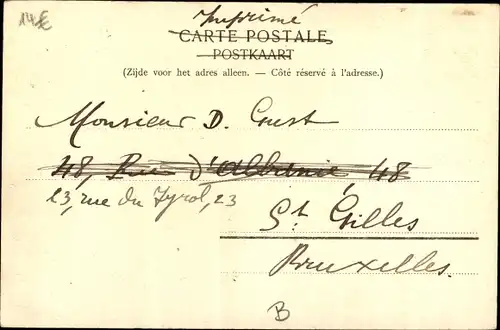 14€
Imprimé
CARTE POSTALE
POSTKAART
(Zijde voor het adres alleen. — Côté réservé à l'adresse.)
Monsieur D.
48, Rue d'Albanie, 48
23, rue du Tyrol, 23
St Gilles
Bruxelles.
B